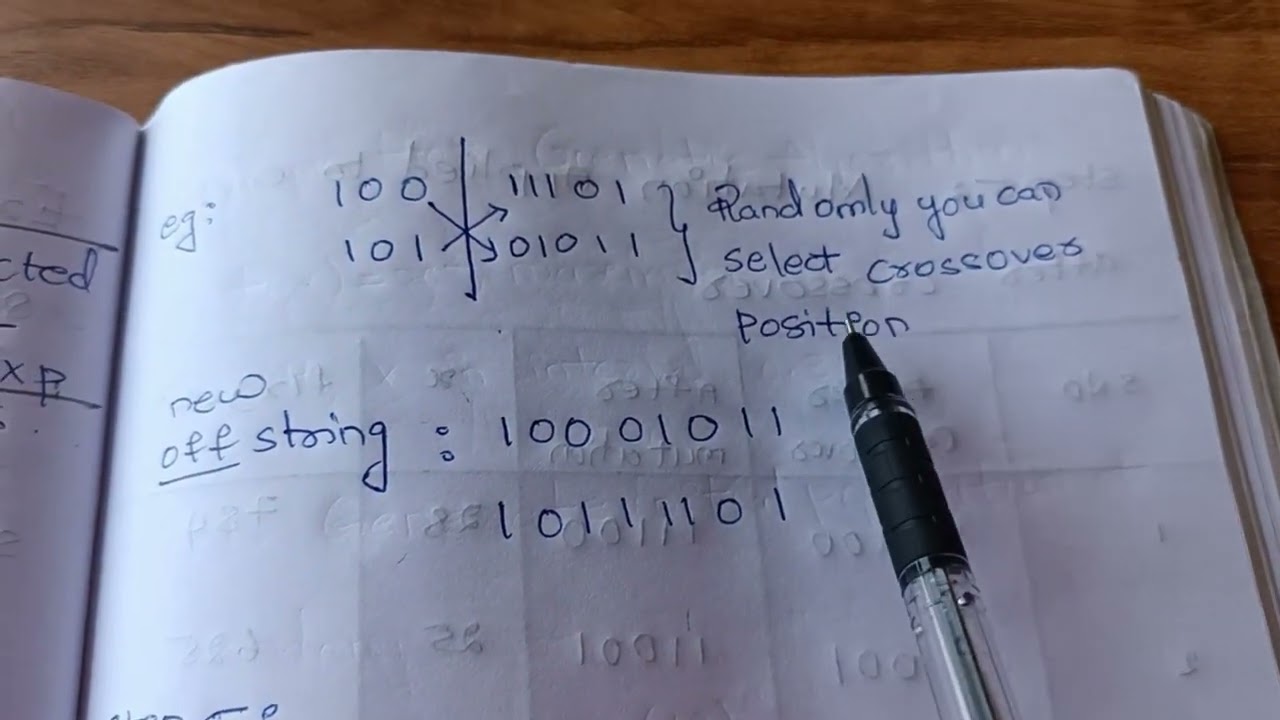 eg: 100 | 11101 } Randomly you can
101 | 01011 } select crossover
position
new
off string : 10001011
10111101
cted
x P